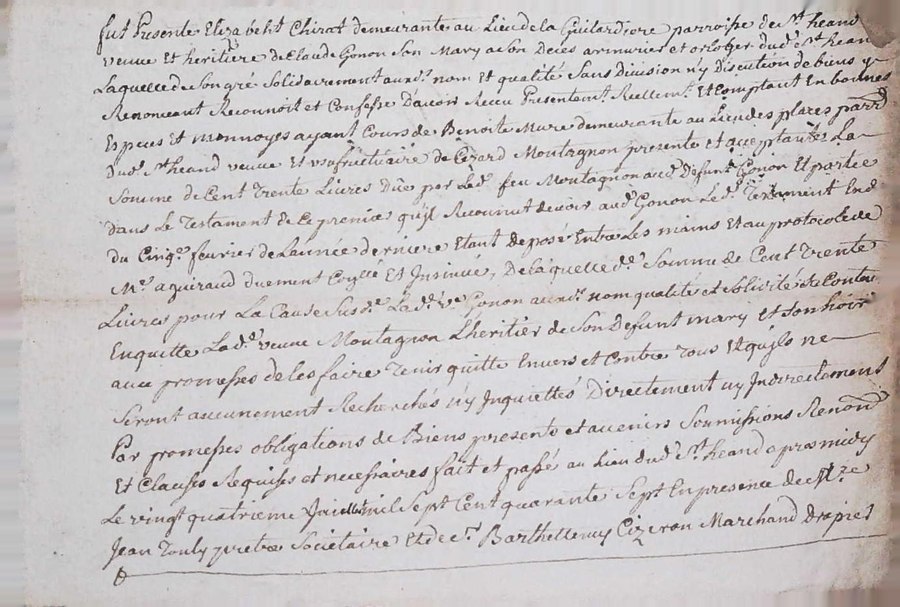 fut Presente Elizabeht Chirat demeurante au Lieu de la Guilardiore parroisse de St heand
veuve Et héritiere de Claude Gonon Son Mary a Son Decés armurier et orloger dud. St heand
Laquelle de Son gré Solidairement aud. nom Et qualité Sans Division n'y Discution de biens y
Renonceant Reconnoit et Confesse D'avoir Receu Presentemt. Réellemt. Et Comptant En bonnes
Especes et monnoyes ayant Cours de Benoite Mure demeurante au Lieu des places parrd
Dud. St heand veuve Et usufructuaire de Cézard Montagnon presente et acceptante La
Somme de Cent Trente Livres Düe par Led. feu Montagnon aud. Défunt Gonon Et portée
Dans Le Testament de Ce premier qu'il Reconnut devoir aud. Gonon Led. Testament En d.
du Cinqe. fevrier de L'année derniere Etant déposé Entre Les mains Et au protocole de
Me. aguiraud duement Coglle Et Insinué, De laquelle de. Somme de Cent Trente
Livres pour La Cause Susd. La d. ve. Gonon aud. nom qualité et solidité st Contte
En quitte La d. veuve Montagnon L'héritier de Son Défunt mary Et Son hoir
avec promesses de les faire Tenir quitte Envers et Contre Tous Et quils ne
Seront aucunement Recherchés n'y Inquiettés Directement n'y Indirectement
Par promesses obligations de Biens presents et avenirs Soumissions Renond
Et Clauses Requises et necessaires fait et passé au Lieu dud. St heand apres midy
Le vingt quatrieme Juillet mil Sept Cent quarante Sept En presence de Mre
Jean Touly pretre Societaire Et de Sr. Barthellemy Cizeron Marchand Drapier